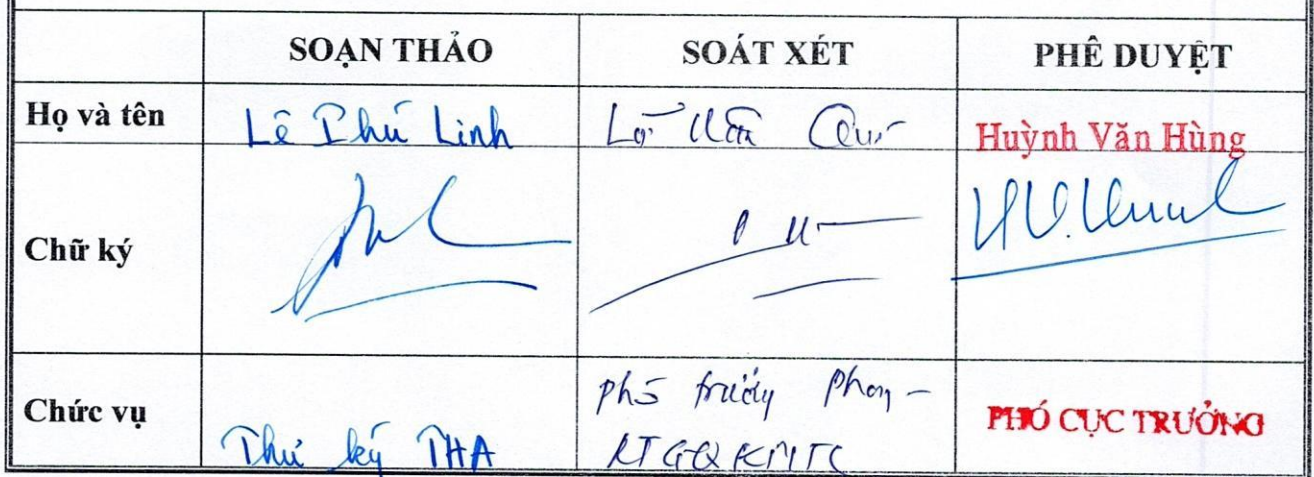 SOẠN THẢO SOÁT XÉT PHÊ DUYỆT
Họ và tên Lê Phú Linh Huỳnh Văn Hùng
Chữ ký
Chức vụ Thư ký THA Phó trưởng Phòng - PHÓ CỤC TRƯỞNG
KTGQKNTC